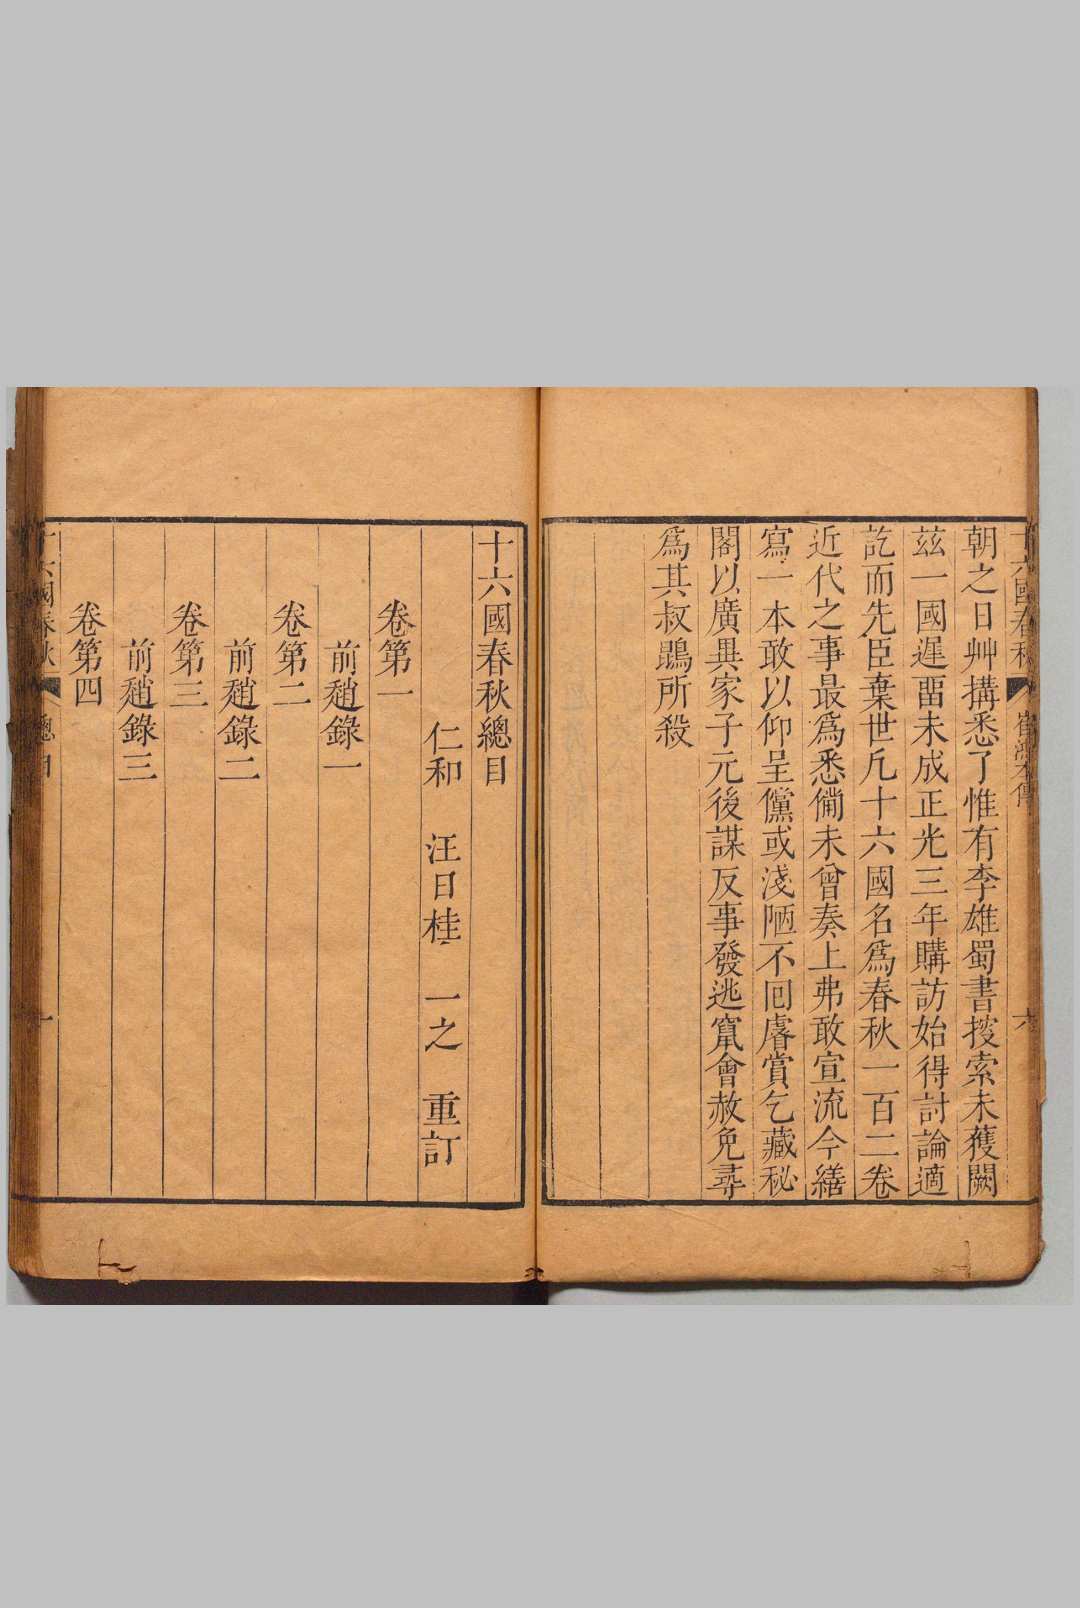 十六國春秋 崔鴻本傳 六
朝之日艸搆悉了惟有李雄蜀書搜索未獲闕
茲一國遲畱未成正光三年購訪始得討論適
訖而先臣棄世凡十六國名爲春秋一百二卷
近代之事最爲悉備未曾奏上弗敢宣流今繕
寫一本敢以仰呈儻或淺陋不囘睿賞乞藏秘
閣以廣異家子元後謀反事發逃竄會赦免尋
爲其叔鵾所殺
十六國春秋總目
仁和 汪日桂 一之 重訂
卷第一
前趙錄一
卷第二
前趙錄二
卷第三
前趙錄三
卷第四
十六國春秋 總目 一